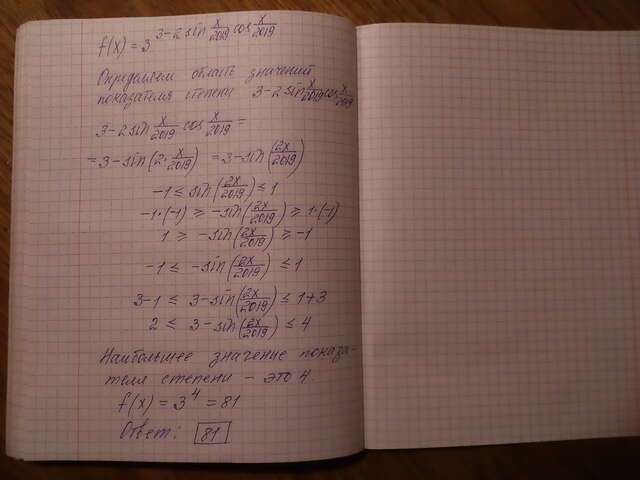 f(x) = 3^(3-2 sin x/2019 cos x/2019)
Определяем область значений
показателя степени 3-2 sin x/2019 cos x/2019
3-2 sin x/2019 cos x/2019 =
= 3 - sin(2· x/2019) = 3 - sin(2x/2019)
-1 ≤ sin(2x/2019) ≤ 1
-1·(-1) ≥ -sin(2x/2019) ≥ 1·(-1)
1 ≥ -sin(2x/2019) ≥ -1
-1 ≤ -sin(2x/2019) ≤ 1
3-1 ≤ 3-sin(2x/2019) ≤ 1+3
2 ≤ 3-sin(2x/2019) ≤ 4
Наибольшее значение показа-
теля степени - это 4.
f(x) = 3^4 = 81
Ответ: 81